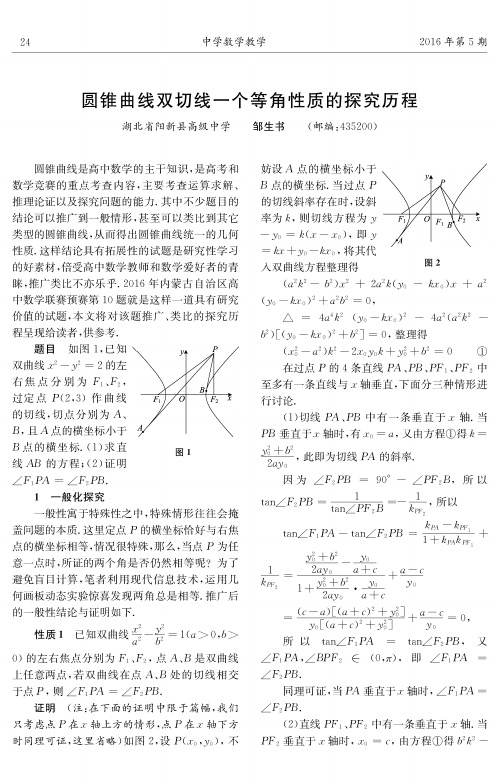 24
中学数学教学
2016 年第 5 期
圆锥曲线双切线一个等角性质的探究历程
湖北省阳新县高级中学 邹生书 (邮编:435200)
圆锥曲线是高中数学的主干知识,是高考和
数学竞赛的重点考查内容,主要考查运算求解、
推理论证以及探究问题的能力.其中不少题目的
结论可以推广到一般情形,甚至可以类比到其它
类型的圆锥曲线,从而得出圆锥曲线统一的几何
性质.这样结论具有拓展性的试题是研究性学习
的好素材,倍受高中数学教师和数学爱好者的青
睐,推广类比不亦乐乎.2016 年内蒙古自治区高
中数学联赛预赛第 10 题就是这样一道具有研究
价值的试题,本文将对该题推广、类比的探究历
程呈现给读者,供参考.
题目 如图 1,已知
双曲线 x² − y² = 2 的左
右焦点分别为 F₁、F₂,
过定点 P(2,3) 作曲线
的切线,切点分别为 A、
B,且 A 点的横坐标小于
B 点的横坐标.(1)求直
线 AB 的方程;(2)证明
∠F₁PA = ∠F₂PB.
y
P
F₁
O
B
F₂
x
A
图 1
1 一般化探究
一般性寓于特殊性之中,特殊情形往往会掩
盖问题的本质.这里定点 P 的横坐标恰好与右焦
点的横坐标相等,情况很特殊,那么,当点 P 为任
意一点时,所证的两个角是否仍然相等呢?为了
避免盲目计算,笔者利用现代信息技术,运用几
何画板动态实验惊喜发现两角总是相等.推广后
的一般性结论与证明如下.
性质 1 已知双曲线 x²/a² − y²/b² = 1(a > 0,b >
0) 的左右焦点分别为 F₁、F₂,点 A、B 是双曲线
上任意两点,若双曲线在点 A、B 处的切线相交
于点 P,则 ∠F₁PA = ∠F₂PB.
证明 (注:在下面的证明中限于篇幅,我们
只考虑点 P 在 x 轴上方的情形,点 P 在 x 轴下方
时同理可证,这里省略)如图 2,设 P(x₀,y₀),不
妨设 A 点的横坐标小于
B 点的横坐标.当过点 P
的切线斜率存在时,设斜
率为 k,则切线方程为 y
− y₀ = k(x − x₀),即 y
= kx + y₀ − kx₀,将其代
入双曲线方程整理得
y
P
F₁
O
F₁
B
F₂
x
A
图 2
(a²k² − b²)x² + 2a²k(y₀ − kx₀)x + a²
(y₀ − kx₀)² + a²b² = 0,
△ = 4a⁴k² (y₀ − kx₀)² − 4a²(a²k² −
b²)[(y₀ − kx₀)² + b²] = 0,整理得
(x₀² − a²)k² − 2x₀y₀k + y₀² + b² = 0 ①
在过点 P 的 4 条直线 PA、PB、PF₁、PF₂ 中
至多有一条直线与 x 轴垂直,下面分三种情形进
行讨论.
(1)切线 PA、PB 中有一条垂直于 x 轴.当
PB 垂直于 x 轴时,有 x₀ = a,又由方程①得 k =
(y₀² + b²)/(2ay₀),此即为切线 PA 的斜率.
因为 ∠F₂PB = 90° − ∠PF₂B,所以
tan∠F₂PB = 1/tan∠PF₂B = − 1/k_{PF₂},所以
tan∠F₁PA − tan∠F₂PB = (k_{PA} − k_{PF₁})/(1 + k_{PA}k_{PF₁}) +
1/k_{PF₂} = ((y₀² + b²)/(2ay₀) − y₀/(a + c))/(1 + (y₀² + b²)/(2ay₀) · y₀/(a + c)) + (a − c)/y₀
= (c − a)[(a + c)² + y₀²]/(y₀[(a + c)² + y₀²]) + (a − c)/y₀ = 0,
所以 tan∠F₁PA = tan∠F₂PB,又
∠F₁PA,∠BPF₂ ∈ (0,π),即 ∠F₁PA =
∠F₂PB.
同理可证,当 PA 垂直于 x 轴时,∠F₁PA =
∠F₂PB.
(2)直线 PF₁、PF₂ 中有一条垂直于 x 轴.当
PF₂ 垂直于 x 轴时,x₀ = c,由方程①得 b²k² −